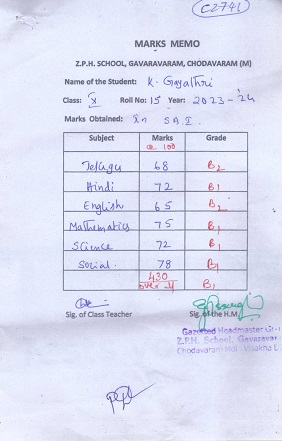 C2741
MARKS MEMO
Z.P.H. SCHOOL, GAVARAVARAM, CHODAVARAM (M)
Name of the Student: K. Gayathri
Class: X Roll No: 15 Year: 2023-'24
Marks Obtained: In SA.I.
Subject Marks @ 100 Grade
Telugu 68 B2
Hindi 72 B1
English 65 B2
Mathematics 75 B1
Science 72 B1
Social. 78 B1
430 B1
Sig. of Class Teacher Sig. of the H.M
Gazetted Headmaster
Z.P.H. School, Gavaravar
Chodavaram Mdl